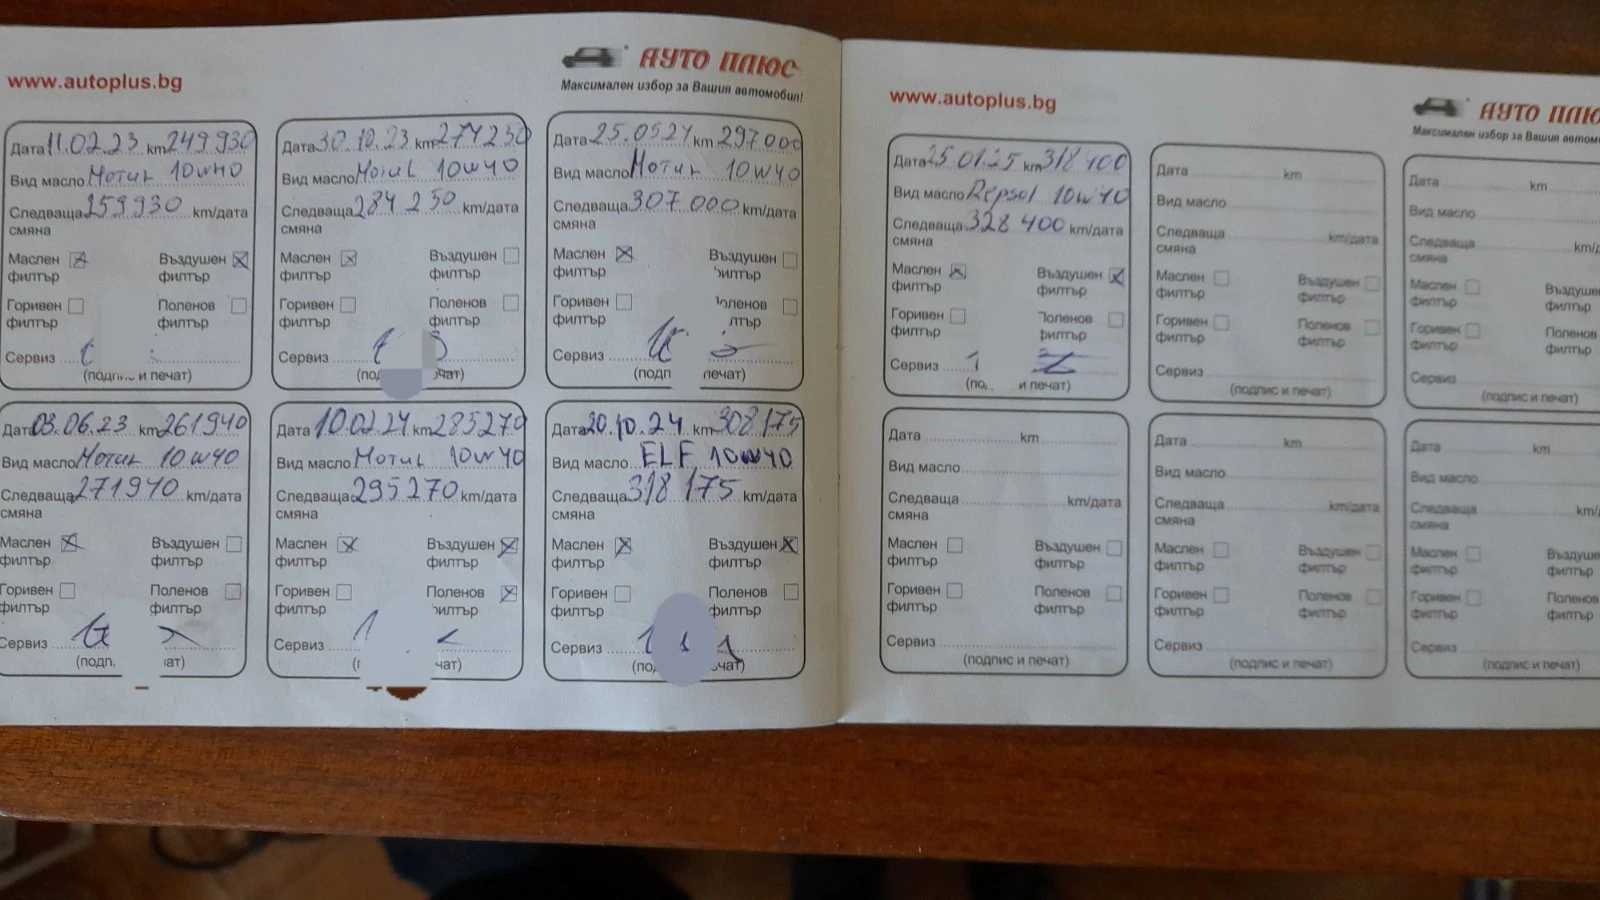 www.autoplus.bg
АУТО ПЛЮС
Максимален избор за Вашия автомобил!
Дата 11.02.23 km 249930
Вид масло Мотul 10w40
Следваща 259930 km/дата
смяна
Маслен Въздушен
филтър филтър
Горивен Поленов
филтър филтър
Сервиз
(подпис и печат)
Дата 30.10.23 km 274250
Вид масло Мотul 10w40
Следваща 284 250 km/дата
смяна
Маслен Въздушен
филтър филтър
Горивен Поленов
филтър филтър
Сервиз
(под чат)
Дата 25.0524 km 297000
Вид масло Мотul 10w40
Следваща 307 000 km/дата
смяна
Маслен Въздушен
филтър илтър
Горивен оленов
филтър лтър
Сервиз
(подп печат)
Дата 03.06.23 km 261940
Вид масло Мотul 10w40
Следваща 271940 km/дата
смяна
Маслен Въздушен
филтър филтър
Горивен Поленов
филтър филтър
Сервиз
(подп. ат)
Дата 10.02.24 km 285270
Вид масло Мотul 10w40
Следваща 295270 km/дата
смяна
Маслен Въздушен
филтър филтър
Горивен Поленов
филтър илтър
Сервиз
чат)
Дата 20.10.24 km 308175
Вид масло ELF 10w40
Следваща 318175 km/дата
смяна
Маслен Въздушен
филтър филтър
Горивен Поленов
филтър филтър
Сервиз
(по чат)
www.autoplus.bg
АУТО ПЛЮ
Максимален избор за Вашия автомо
Дата 25.01.25 km 318400
Вид масло Repsol 10w40
Следваща 328 400 km/дата
смяна
Маслен Въздушен
филтър филтър
Горивен оленов
филтър илтър
Сервиз
(по и печат)
Дата km
Вид масло
Следваща km/дата
смяна
Маслен Въздушен
филтър филтър
Горивен Поленов
филтър филтър
Сервиз
(подпис и печат)
Дата km
Вид масло
Следваща km/
смяна
Маслен Въздушен
филтър филтър
Горивен Поленов
филтър филтър
Сервиз
(подпис и печат)
Дата km
Вид масло
Следваща km/дата
смяна
Маслен Въздушен
филтър филтър
Горивен Поленов
филтър филтър
Сервиз
(подпис и печат)
Дата km
Вид масло
Следваща km/дата
смяна
Маслен Въздушен
филтър филтър
Горивен Поленов
филтър филтър
Сервиз
(подпис и печат)
Дата km
Вид масло
Следваща km/
смяна
Маслен Въздушен
филтър филтър
Горивен Поленов
филтър филтър
Сервиз
(подпис и печат)